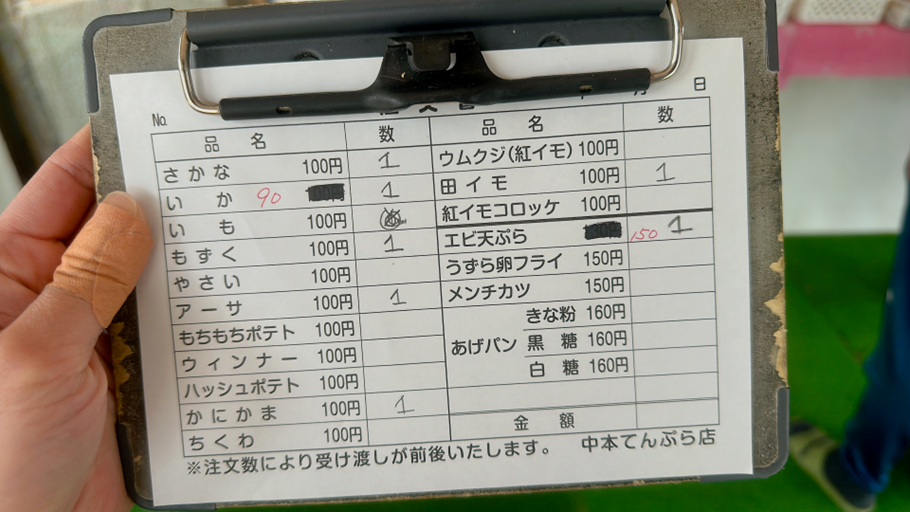 No.
月 日
品 名 数
さかな 100円 1
いか 90 1
いも 100円
もずく 100円 1
やさい 100円
アーサ 100円 1
もちもちポテト 100円
ウィンナー 100円
ハッシュポテト 100円
かにかま 100円 1
ちくわ 100円
品 名 数
ウムクジ(紅イモ) 100円
田イモ 100円 1
紅イモコロッケ 100円
エビ天ぷら 150 1
うずら卵フライ 150円
メンチカツ 150円
あげパン
きな粉 160円
黒糖 160円
白糖 160円
金額
※注文数により受け渡しが前後いたします。 中本てんぷら店